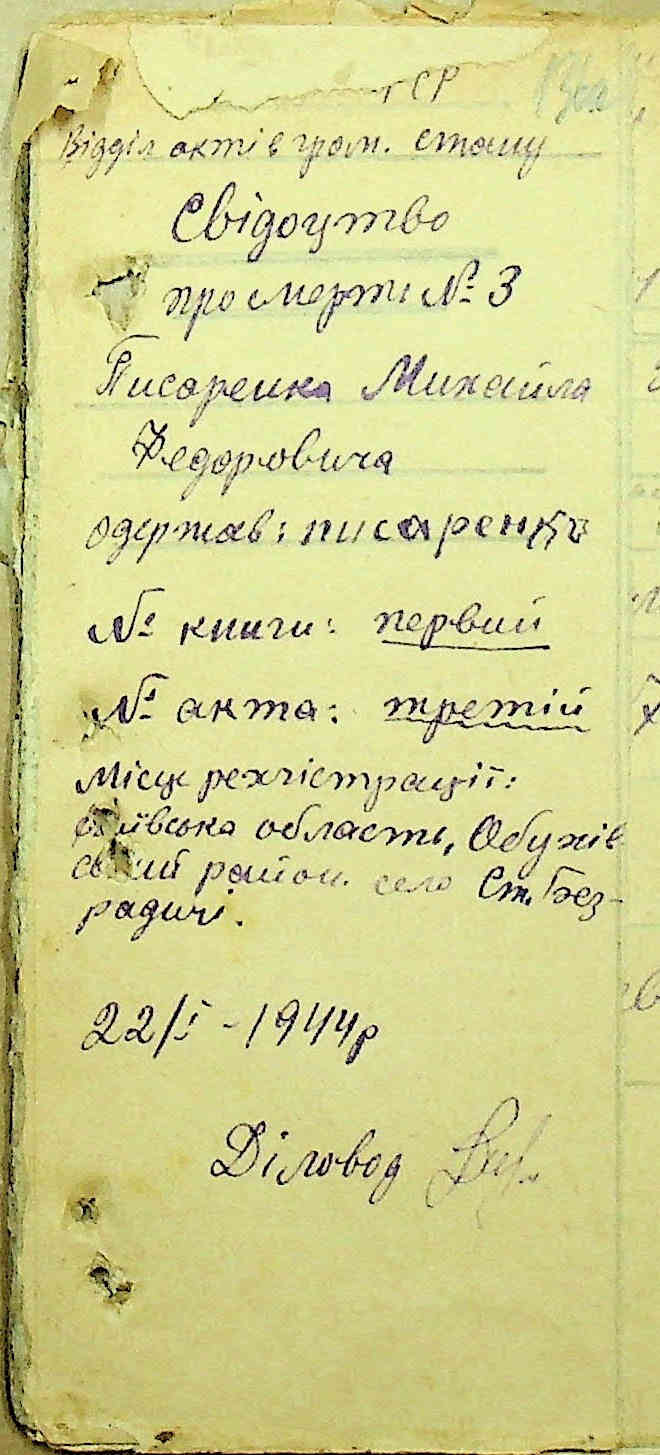 СР
Відділ актів гром. стану
Свідоцтво
про смерть № 3
Писаренка Михайла
Федоровича
одержав: писаренко
№ книги: первий
№ акта: третій
Місце регчістрації:
Київська область, Обухів
ський район. село Ст. Без-
радичі.
22/І - 1944р
Діловод